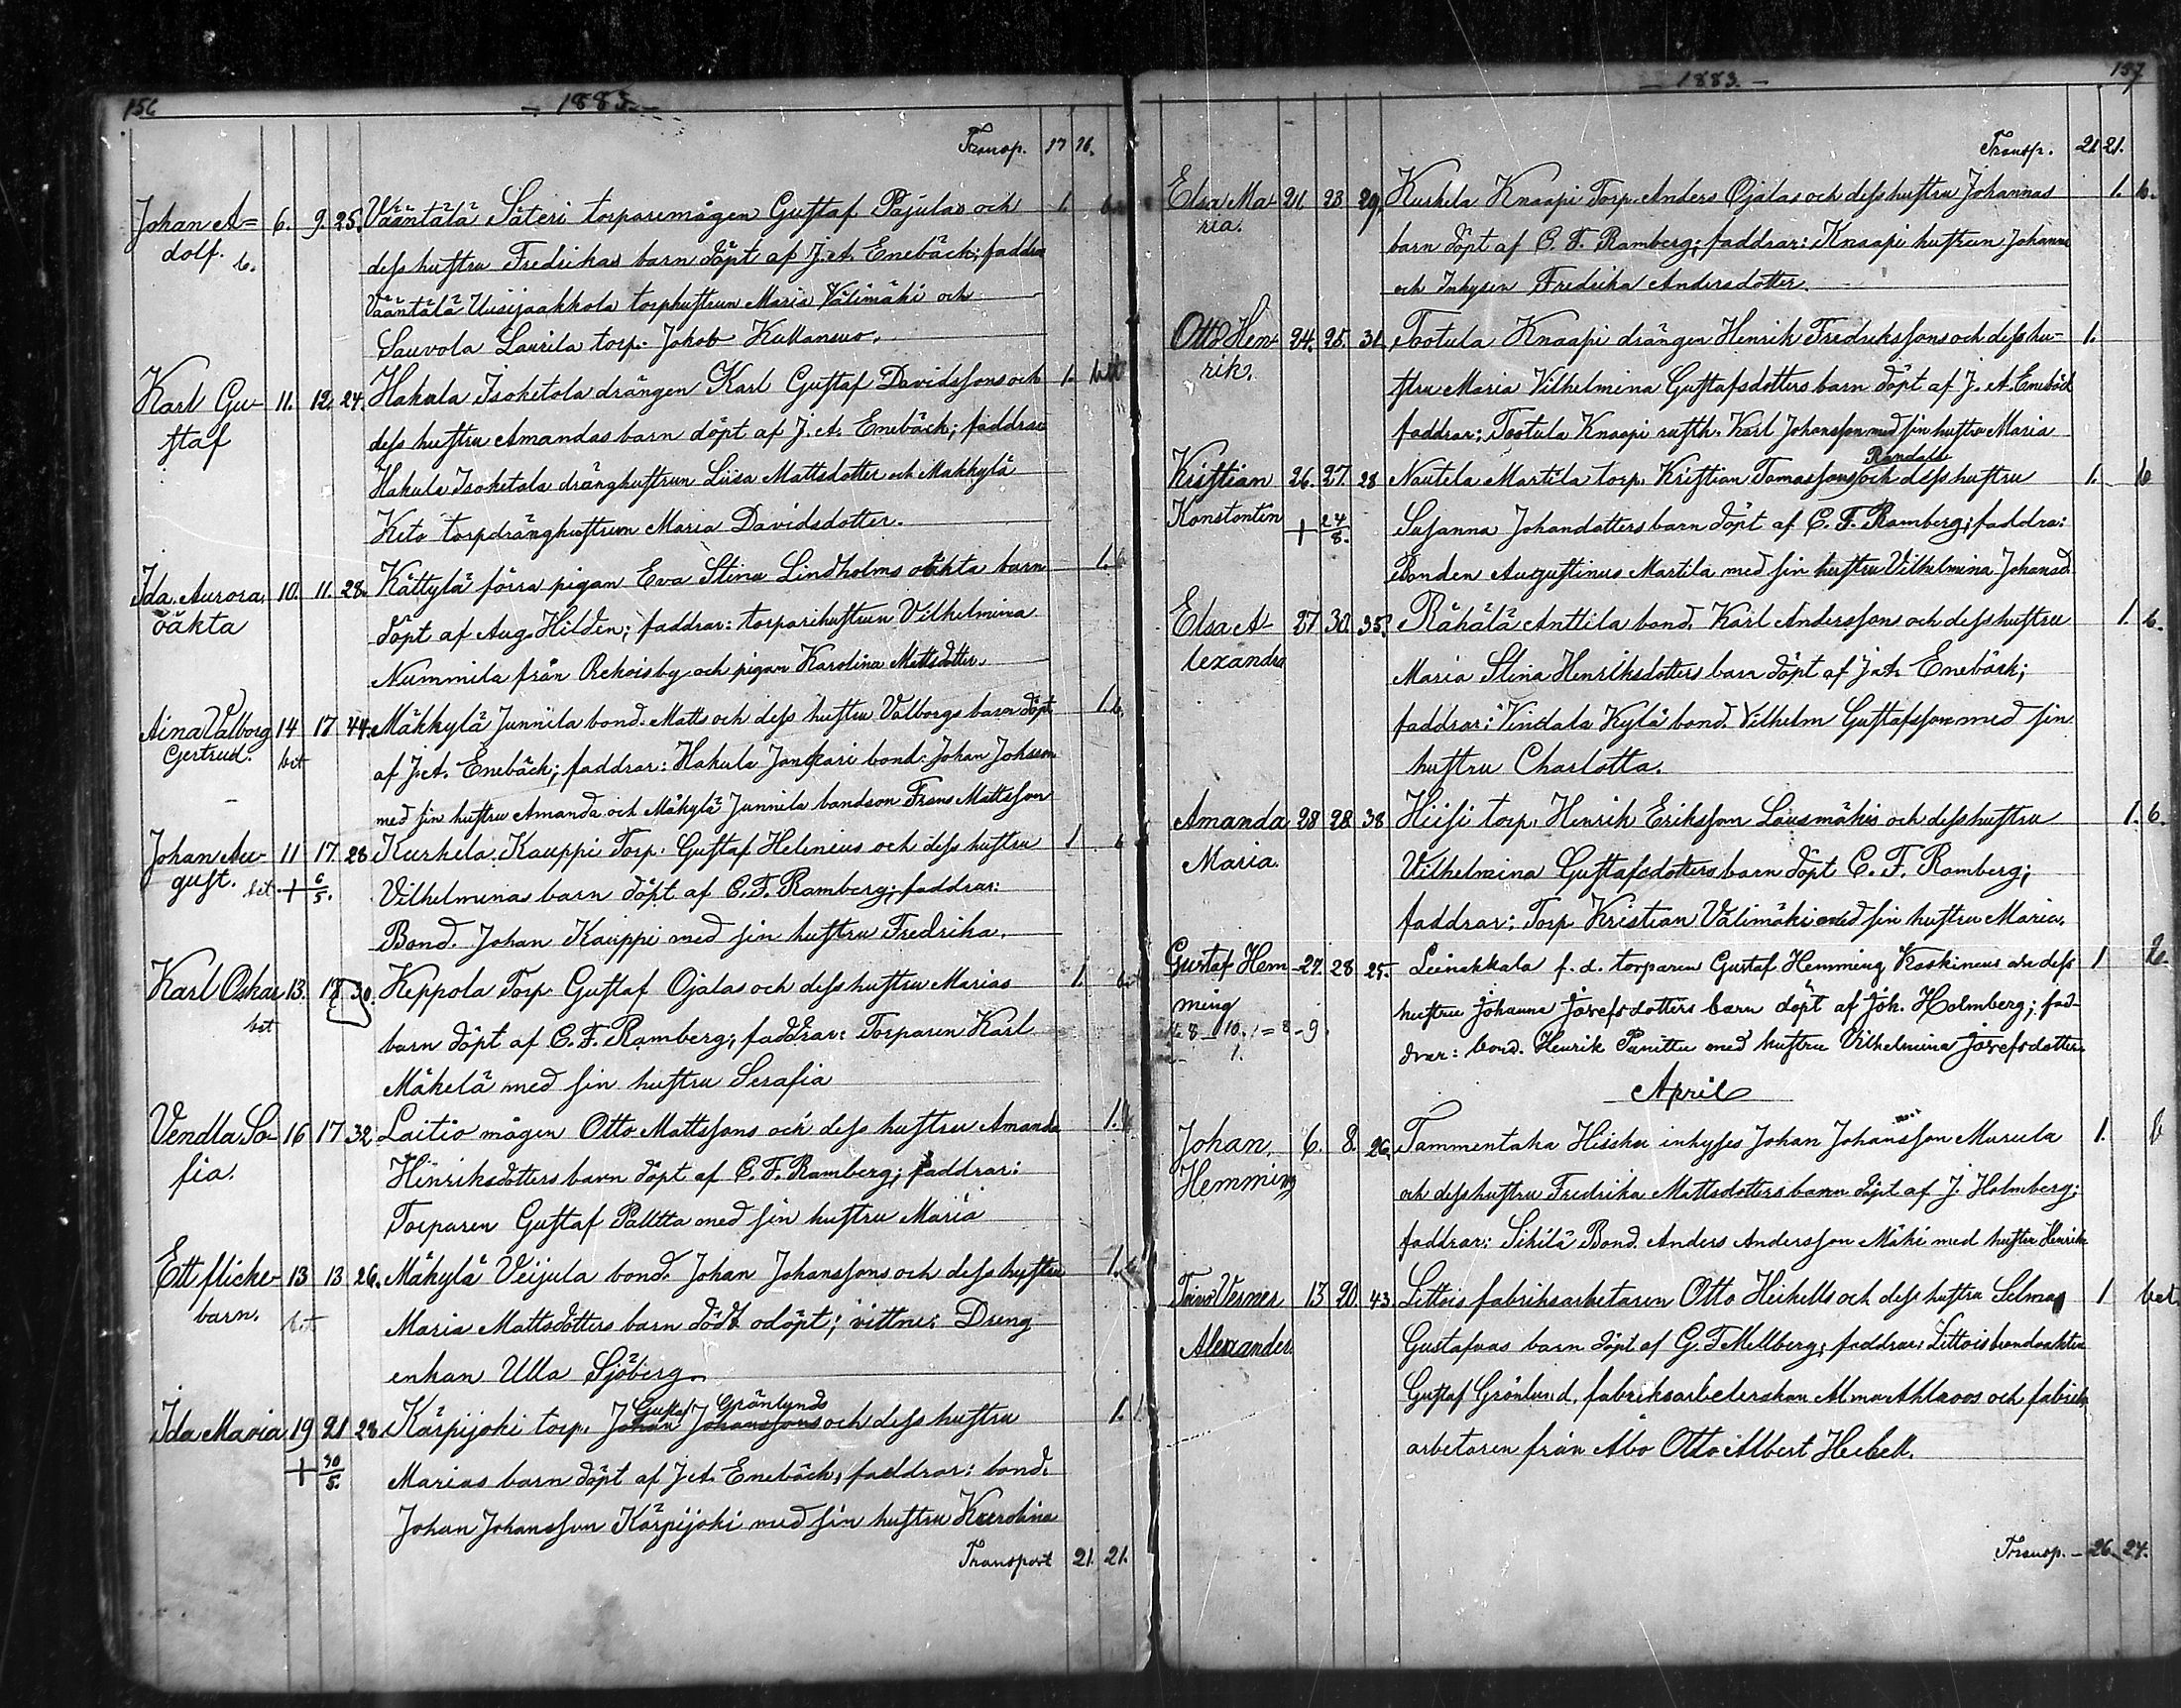 156
- 1883. -
Transp. 17 16.
Johan A= 6. 9. 25. Vääntälä Säteri torparemågen Gustaf Pajulas och 1. b.
dolf. b. dess hustru Fredrikas barn döpt af J. A. Enebäck; faddra
Vääntälä Uusijaakkola torphustrun Maria Välimäki och
Sauvola Laurila torp. Jakob Kukansuo.
Karl Gu- 11. 12. 24. Hakula Isoketola drängen Karl Gustaf Davidssons och 1. bet
staf dess hustru Amandas barn döpt af J. A. Enebäck; faddrar
Hakula Isoketola dränghustrun Liisa Mattsdotter och Makkylä
Keto torpdränghustrun Maria Davidsdotter.
Ida Aurora 10. 11. 28. Kättylä förra pigan Eva Stina Lindholms oäkta barn 1. b
oäkta döpt af Aug. Hilden; faddrar: torparehustrun Vilhelmina
Nummila från Rekoisby och pigan Karolina Mattsdotter.
Aina Valborg 14 17 44. Mäkkylä Junnila bond. Matts och dess hustru Valborgs barn döpt 1. b.
Gertrud. bet af J. A. Enebäck; faddrar: Hakula Jankari bond. Johan Johsson
med sin hustru Amanda och Mäkylä Junnila bondson Frans Mattsson
Johan Au- 11 17 28 Kurkela Kauppi Torp. Gustaf Helenius och dess hustru 1 b
gust. bet + 6/5. Vilhelminas barn döpt af C. F. Ramberg; faddrar:
Bond. Johan Kauppi med sin hustru Fredrika.
Karl Oskar 13. 18 30. Keppola Torp Gustaf Ojalas och dess hustru Marias 1. b
bet barn döpt af C. F. Ramberg; faddrar: Torparen Karl
Mäkelä med sin hustru Serafia
Vendla So- 16 17 32 Laitio mågen Otto Mattssons och dess hustru Amanda 1. b
fia. Hinriksdotters barn döpt af C. F. Ramberg; faddrar:
Torparen Gustaf Palttta med sin hustru Maria
Ett flicke- 13 13 26. Mäkylä Veijula bond. Johan Johanssons och dess hustru 1. b
barn. bet Maria Mattsdotters barn dödt odöpt; vittne: Dreng
enkan Ulla Sjöberg.
Gustaf Grönlunds
Ida Maria 19 21 28 Kärpijoki torp. Johan Johanssons och dess hustru 1.
+ 30/5. Marias barn döpt af J. A. Enebäck, faddrar: bond.
Johan Johansson Kärpijoki med sin hustru Karolina
Transport 21. 21.
157
- 1883. -
Transp. 21 21.
Elsa Ma- 21. 23 29. Kurkela Knaapi Torp. Anders Ojalas och dess hustru Johannas 1. b.
ria. barn döpt af C. F. Ramberg; faddrar: Knaapi hustrun Johanna
och Inhysen Fredrika Andersdotter.
Otto Hen- 24. 25. 31. Tootula Knaapi drängen Henrik Fredrikssons och dess hu- 1.
rik. stru Maria Vilhelmina Gustafsdotters barn döpt af J. A. Enebäck
faddrar: Tootula Knaapi rusth. Karl Johansson med sin hustru Maria
Randals
Kristian 26. 27. 28 Nautela Martila torp. Kristian Tomassons och dess hustru 1. b
Konstantin + 24/8. Susanna Johandotters barn döpt af C. F. Ramberg; faddra:
Bonden Augustinus Martila med sin hustru Vilhelmina Johansd.
Elsa A- 27 30. 35. Rähälä Anttila bond. Karl Anderssons och dess hustru 1. b.
lexandra Maria Stina Henriksdotters barn döpt af J. A. Enebäck;
faddrar: Vindala Kylä bond. Vilhelm Gustafsson med sin
hustru Charlotta.
Amanda 28 28 38 Hiisi torp. Henrik Eriksson Lausmäkis och dess hustru 1. b.
Maria. Vilhelmina Gustafsdotters barn döpt C. F. Ramberg;
faddrar: Torp Kristian Välimäki med sin hustru Maria.
Gustaf Hem- 27. 28 25. Leinakkala f. d. torparen Gustaf Hemming Koskinens och dess 1 b.
ming hustru Johanna Josefsdotters barn döpt af Joh. Holmberg; fad-
drar: bond. Henrik Punittu med hustru Vilhelmina Josefsdotter.
April
Johan 6. 8. 26. Tammentaka Heiska inhyses Johan Johansson Murula 1. b
Hemming och dess hustru Fredrika Mattsdotters barn döpt af J. Holmberg;
faddrar: Sikilä Bond. Anders Andersson Mäki med hustru Henrika
Toivo Verner 13 20. 43. Littois fabriksarbetaren Otto Heikells och dess hustru Selma 1 bet
Alexander. Gustafvas barn döpt af G. T. Mellberg; faddrar: Littois brandvakten
Gustaf Grönlund, fabriksarbeterskan Alma Ahlroos och fabriks
arbetaren från Åbo Otto Albert Heikell.
Transp. - 26 24.